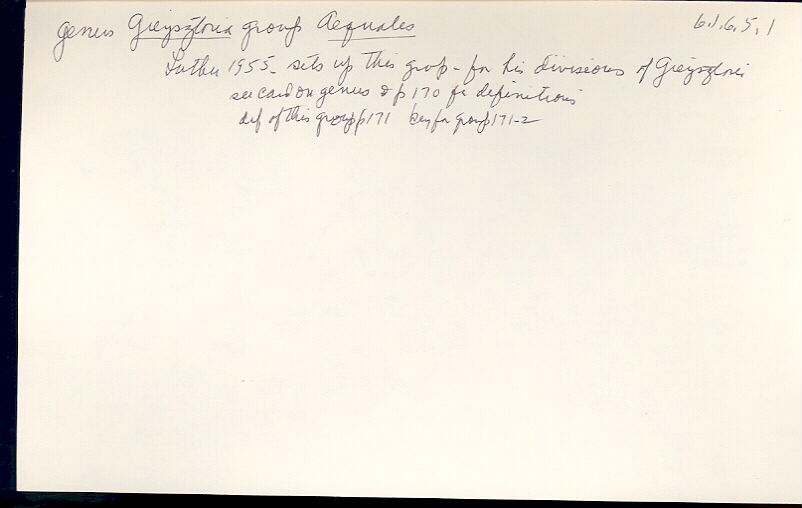 genus Gieysztoria group Aequales 6.1.6.5.1
Luther 1955 - sets up this group - for his divisions of Gieysztoria
see card on genus & p 170 for definitions
def of this group p171 key for group 171-2